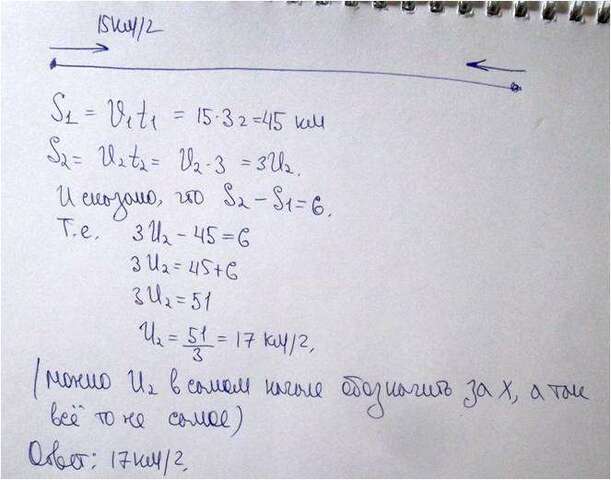 15км/г
S₁ = V₁t₁ = 15·3г=45 км
S₂= V₂t₂= V₂·3 = 3V₂.
И сказано, что S₂ – S₁=6.
Т.е. 3V₂ – 45=6
3V₂ = 45+6
3V₂ = 51
V₂ = 51/3 = 17 км/г.
(можно V₂ в самом начале обозначить за x, а так
всё то же самое)
Ответ: 17км/г.